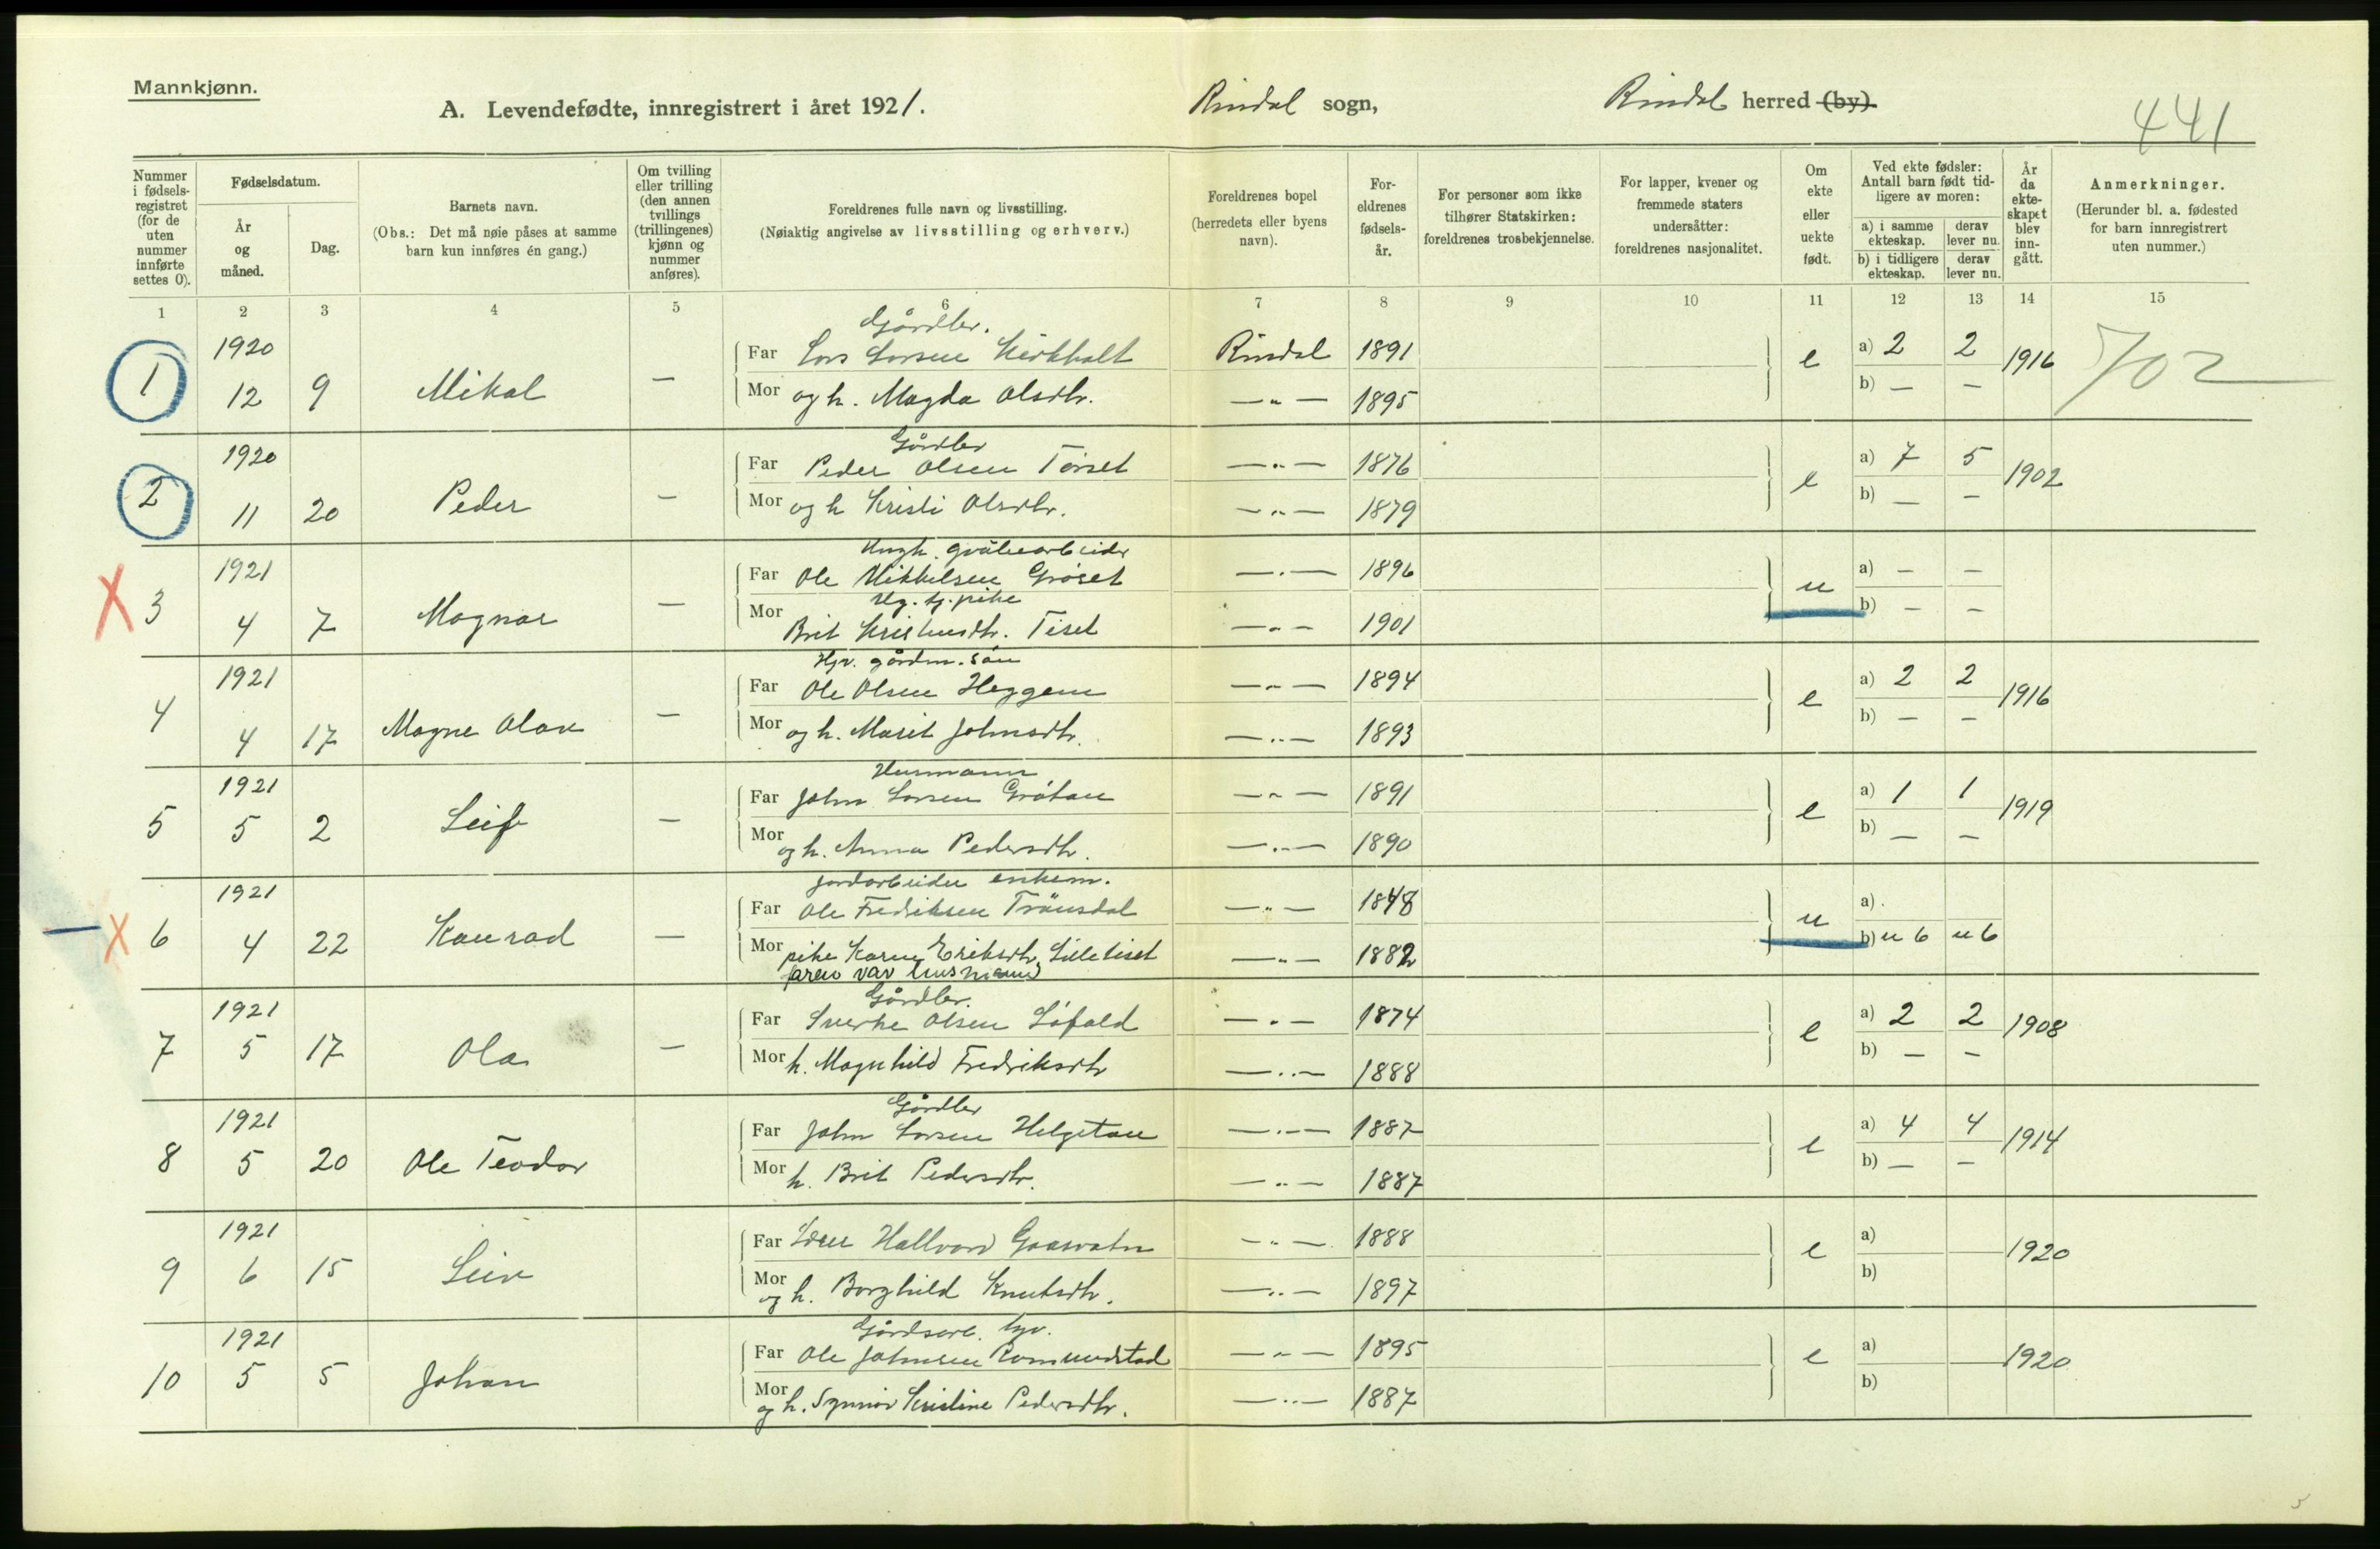 Mannkjønn.
A. Levendefødte, innregistrert i året 1921. Rindal sogn, Rindal herred (by).
441
Nummer i fødsels-registret (for de uten nummer innførte settes 0).
Fødselsdatum.
År og måned.
Dag.
Barnets navn.
(Obs.: Det må nøie påses at samme barn kun innføres én gang.)
Om tvilling eller trilling (den annen tvillings (trillingenes) kjønn og nummer anføres).
Foreldrenes fulle navn og livsstilling.
(Nøiaktig angivelse av livsstilling og erhverv.)
Foreldrenes bopel (herredets eller byens navn).
For-eldrenes fødsels-år.
For personer som ikke tilhører Statskirken: foreldrenes trosbekjennelse.
For lapper, kvener og fremmede staters undersåtter: foreldrenes nasjonalitet.
Om ekte eller uekte født.
Ved ekte fødsler: Antall barn født tid-ligere av moren:
a) i samme ekteskap. derav lever nu.
b) i tidligere ekteskap. derav lever nu.
År da ekte-skapet blev inn-gått.
Anmerkninger.
(Herunder bl. a. fødested for barn innregistrert uten nummer.)
1 2 3 4 5 6 7 8 9 10 11 12 13 14 15
Gårdbr.
1 1920 Far Lars Larsen Kirkholt Rindal 1891 e a) 2 2 1916 702
12 9 Mikal — Mor og h. Magda Olsdtr. —"— 1895 b) — —
Gårdbr
2 1920 Far Peder Olsen Tørset —"— 1876 e a) 7 5 1902
11 20 Peder — Mor og h Kristi Olsdtr. —"— 1879 b) — —
Ungk. gruvearbeider
X 3 1921 Far Ole Mikkelsen Grøset —"— 1896 u a) — —
Ug. tj. pike
4 7 Magnar — Mor Brit Kristensdtr. Tiset —"— 1901 b) — —
Hjv. gårdm. søn
4 1921 Far Ole Olsen Heggem —"— 1894 e a) 2 2 1916
4 17 Magne Olav — Mor og h. Marit Johnsdtr. —"— 1893 b) — —
Husmann
5 1921 Far John Larsen Grøtan —"— 1891 e a) 1 1 1919
5 2 Leif — Mor og h. Anna Pedersdtr. —"— 1890 b) — —
Jordarbeider enkem.
X 6 1921 Far Ole Fredriksen Trønsdal —"— 1848 u a)
4 22 Konrad — Mor pike Karen Eriksdtr. Lilletiset —"— 1882 b) u 6 u 6
faren var husmann
Gårdbr.
7 1921 Far Sverke Olsen Løfald —"— 1874 e a) 2 2 1908
5 17 Ola — Mor h. Magnhild Fredriksdtr —"— 1888 b) — —
Gårdbr
8 1921 Far John Larsen Helgetun —"— 1887 e a) 4 4 1914
5 20 Ole Teodor Mor h. Brit Pedersdtr. —"— 1887 b) — —
9 1921 Far Hallvard Gaasvatn —"— 1888 e a) 1920
6 15 Leiv Mor og h. Borghild Knutsdtr. —"— 1897 b)
Gårdsarb.
10 1921 Far Ole Johnsen Romundstad —"— 1895 e a) 1920
5 5 Johan Mor og h. Synnøv Kristine Pedersdtr. —"— 1887 b)
5